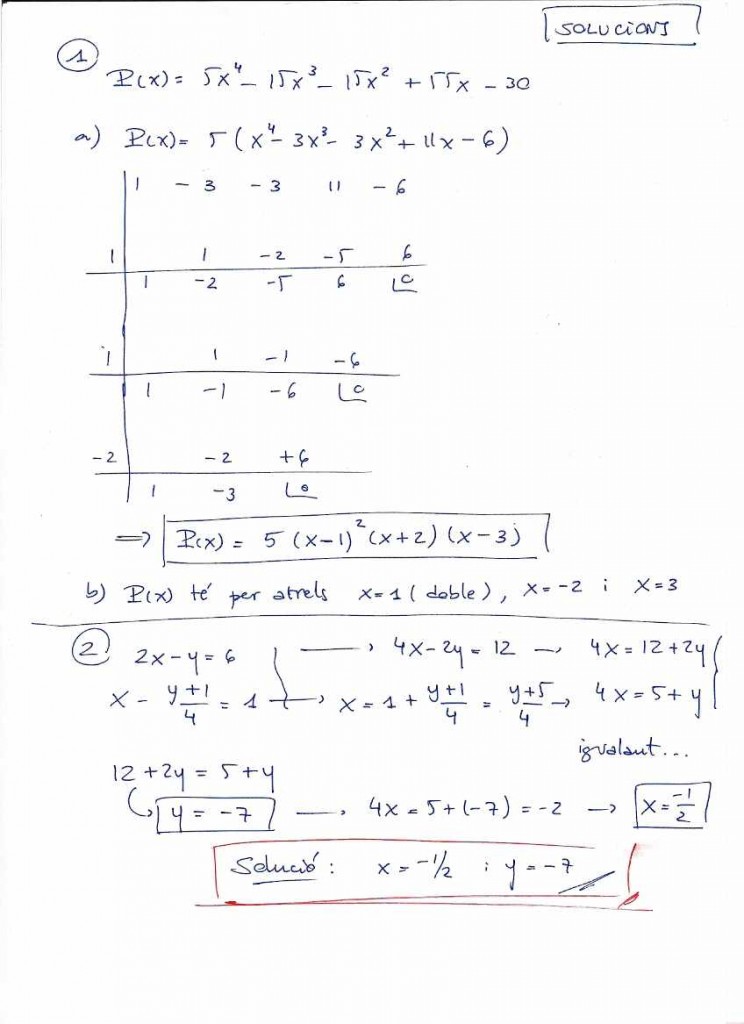 SOLUCIONS
1
P(x) = 5x⁴ - 15x³ - 15x² + 55x - 30
a) P(x) = 5 (x⁴ - 3x³ - 3x² + 11x - 6)
1 - 3 - 3 11 - 6
1 1 -2 -5 6
1 -2 -5 6 0
1 1 -1 -6
1 -1 -6 0
-2 -2 +6
1 -3 0
⟹ P(x) = 5 (x-1)² (x+2) (x-3)
b) P(x) té per arrels x=1 (doble), x=-2 i x=3
2
2x-y=6 → 4x-2y=12 → 4x=12+2y
x - (y+1)/4 = 1 → x = 1 + (y+1)/4 = (y+5)/4 → 4x=5+y
igualant...
12+2y = 5+y
y = -7 → 4x = 5+(-7) = -2 → x = -1/2
Solució: x = -1/2 i y = -7